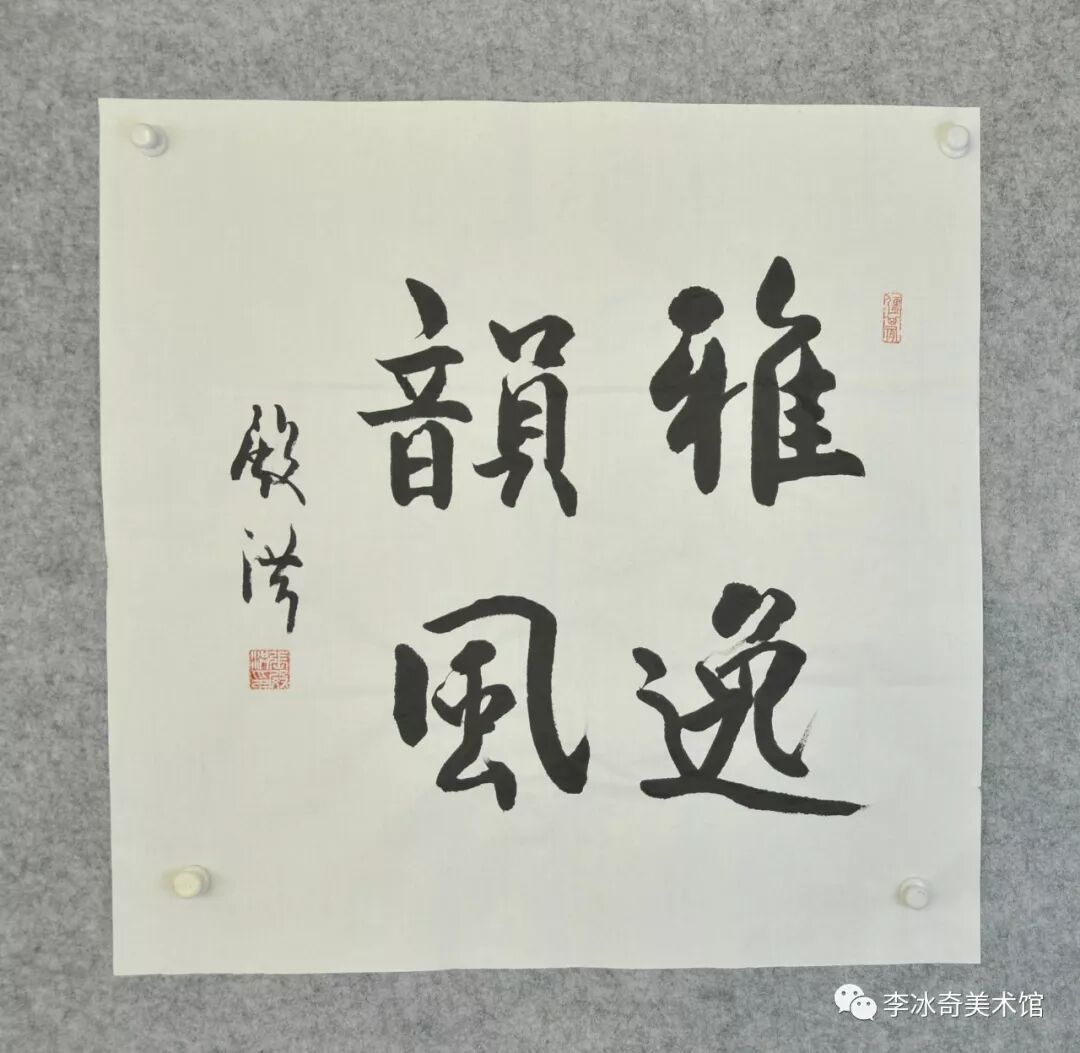 雅逸
韻風
殿洪
李冰奇美术馆